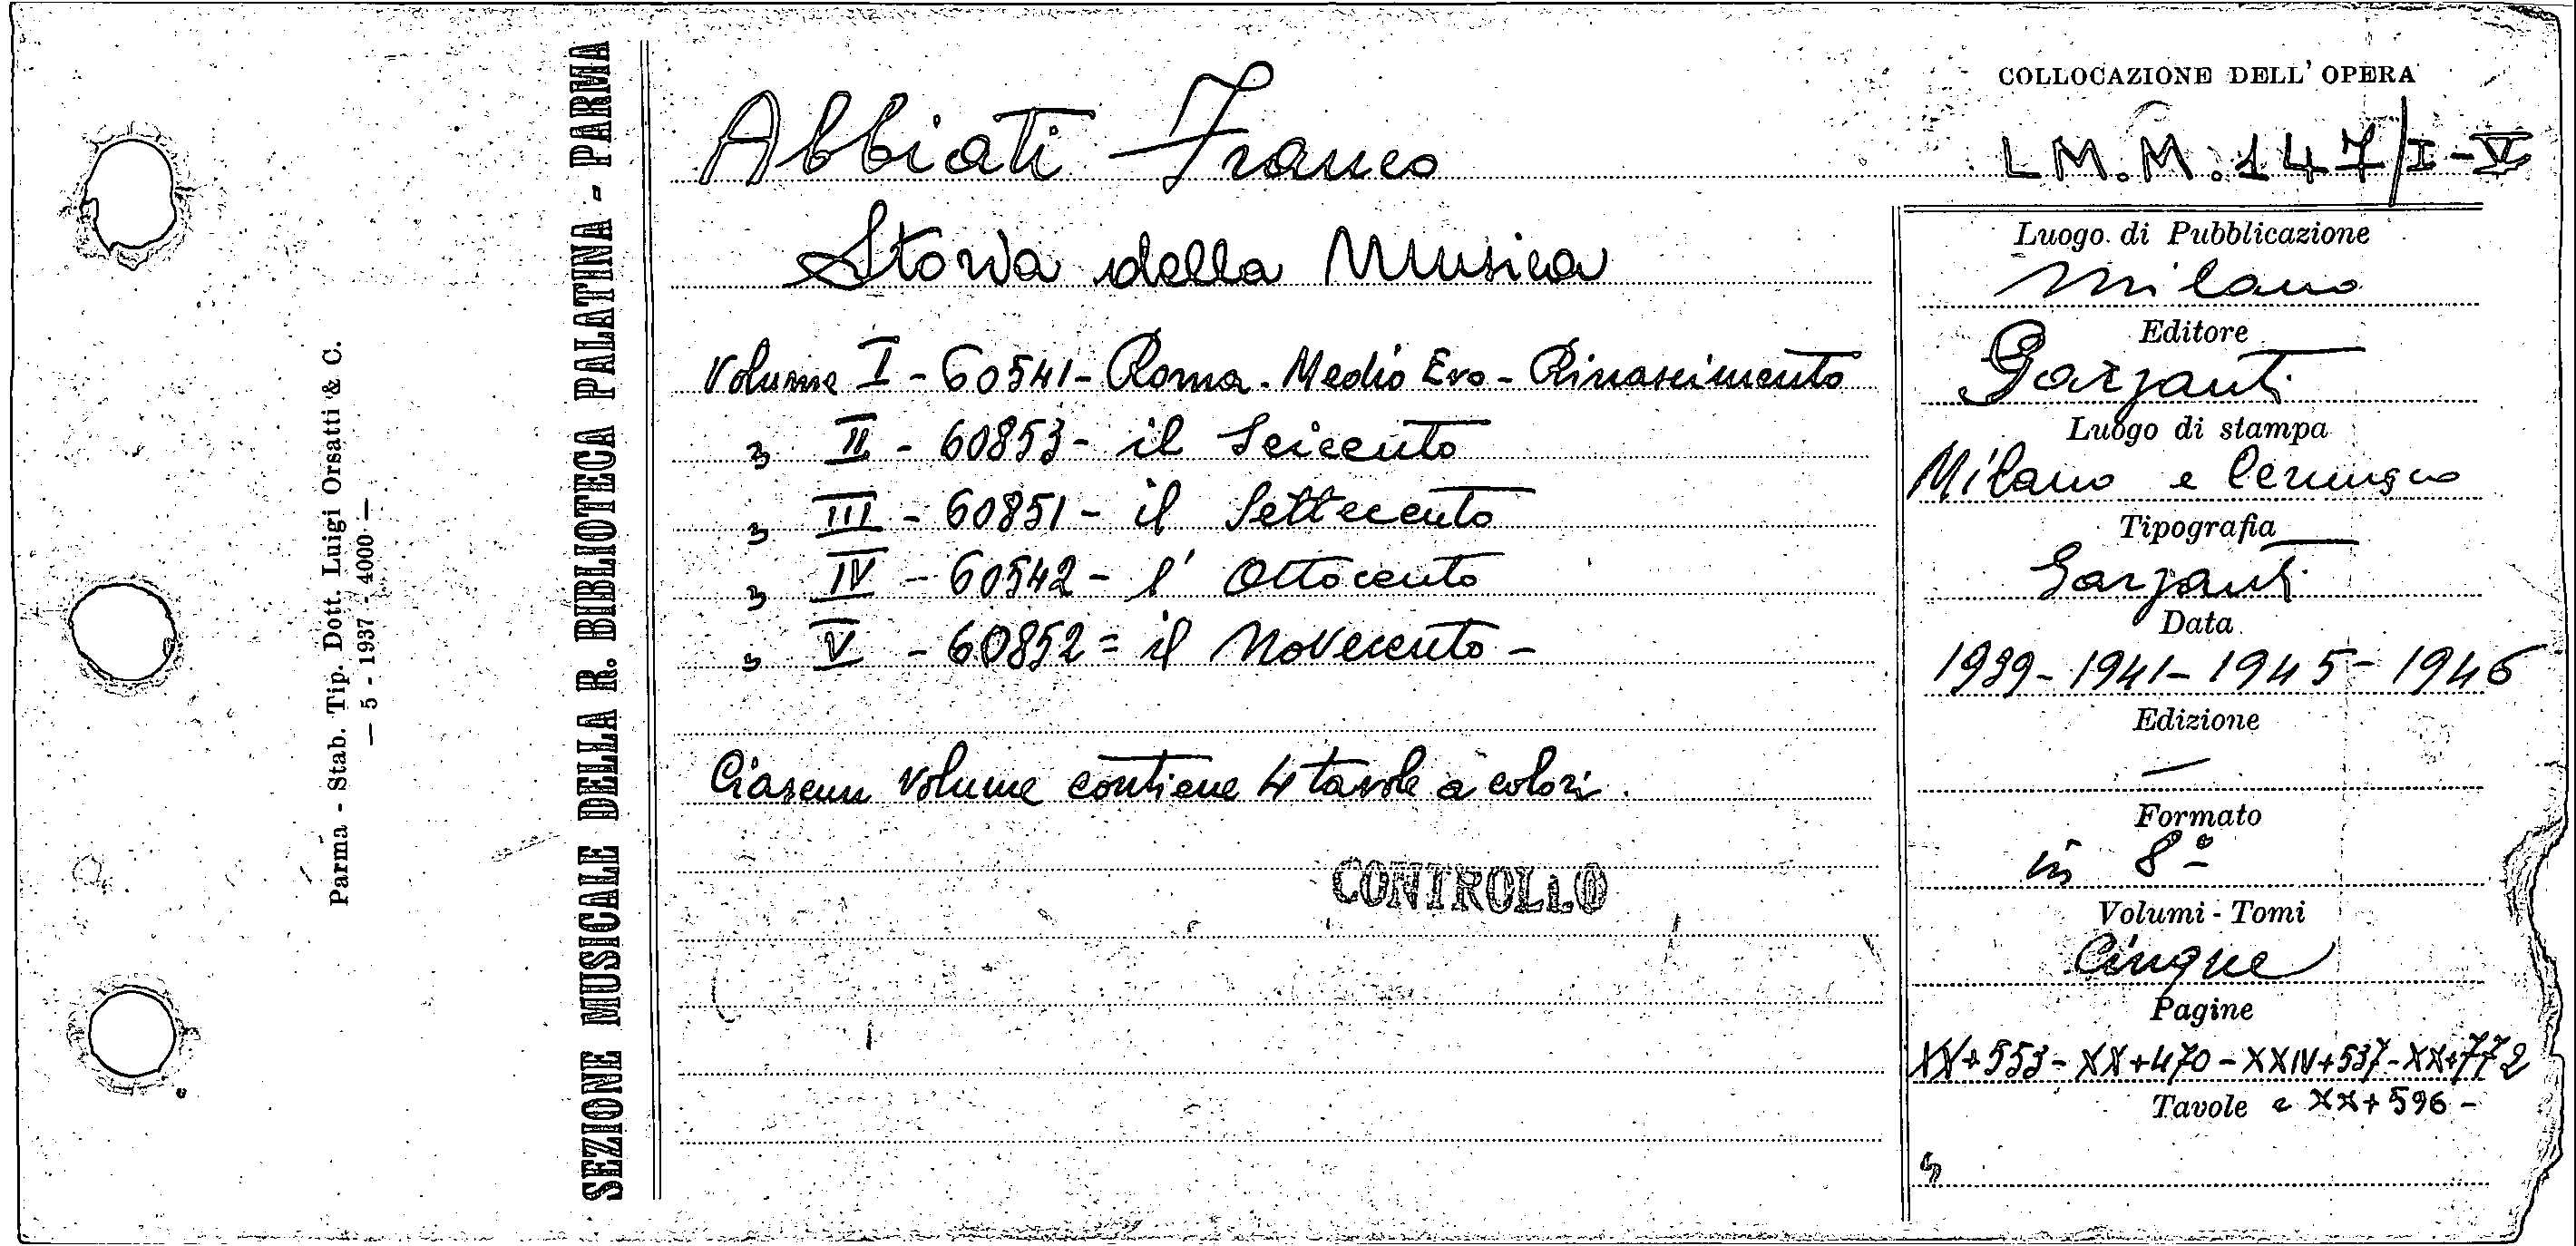 SEZIONE MUSICALE DELLA R. BIBLIOTECA PALATINA - PARMA
Parma - Stab. Tip. Dott. Luigi Orsatti & C.
— 5 - 1937 - 4000 —
COLLOCAZIONE DELL'OPERA
L M.M.147/I-V
Abbiati Franco
Storia della Musica
Volume I - 60541 - Roma - Medio Evo - Rinascimento
" II - 60853 - il Seicento
" III - 60851 - il Settecento
" IV - 60542 - l'Ottocento
" V - 60852 = il Novecento -
Ciascun volume contiene 4 tavole a colori.
CONTROLLO
Luogo di Pubblicazione
Milano
Editore
Garzanti
Luogo di stampa
Milano e Cernusco
Tipografia
Garzanti
Data
1939-1941-1945-1946
Edizione
—
Formato
in 8º
Volumi - Tomi
Cinque
Pagine
XX+553-XX+470-XXIV+537-XX+772
Tavole e XX+596-